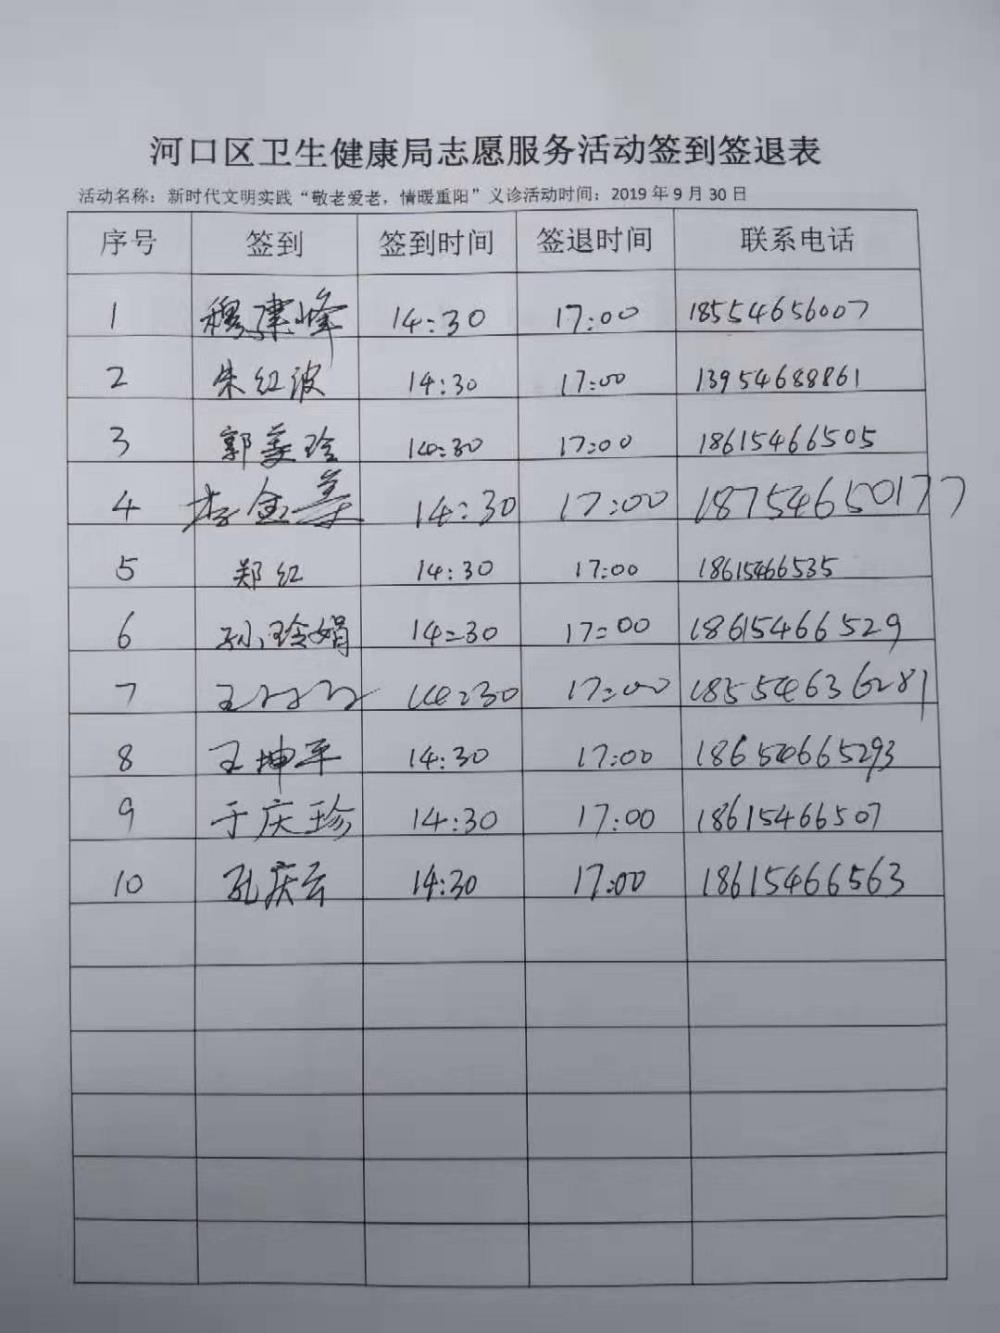 河口区卫生健康局志愿服务活动签到签退表
活动名称：新时代文明实践“敬老爱老，情暖重阳”义诊活动时间：2019年9月30日
序号 签到 签到时间 签退时间 联系电话
1 穆建峰 14:30 17:00 18554656007
2 朱红波 14:30 17:00 13954688861
3 郭美玲 14:30 17:00 18615466505
4 李金美 14:30 17:00 18754650177
5 郑红 14:30 17:00 18615466535
6 孙玲娟 14:30 17:00 18615466529
7 王 14:30 17:00 18554636281
8 王坤平 14:30 17:00 18654665293
9 于庆珍 14:30 17:00 18615466507
10 孔庆云 14:30 17:00 18615466563